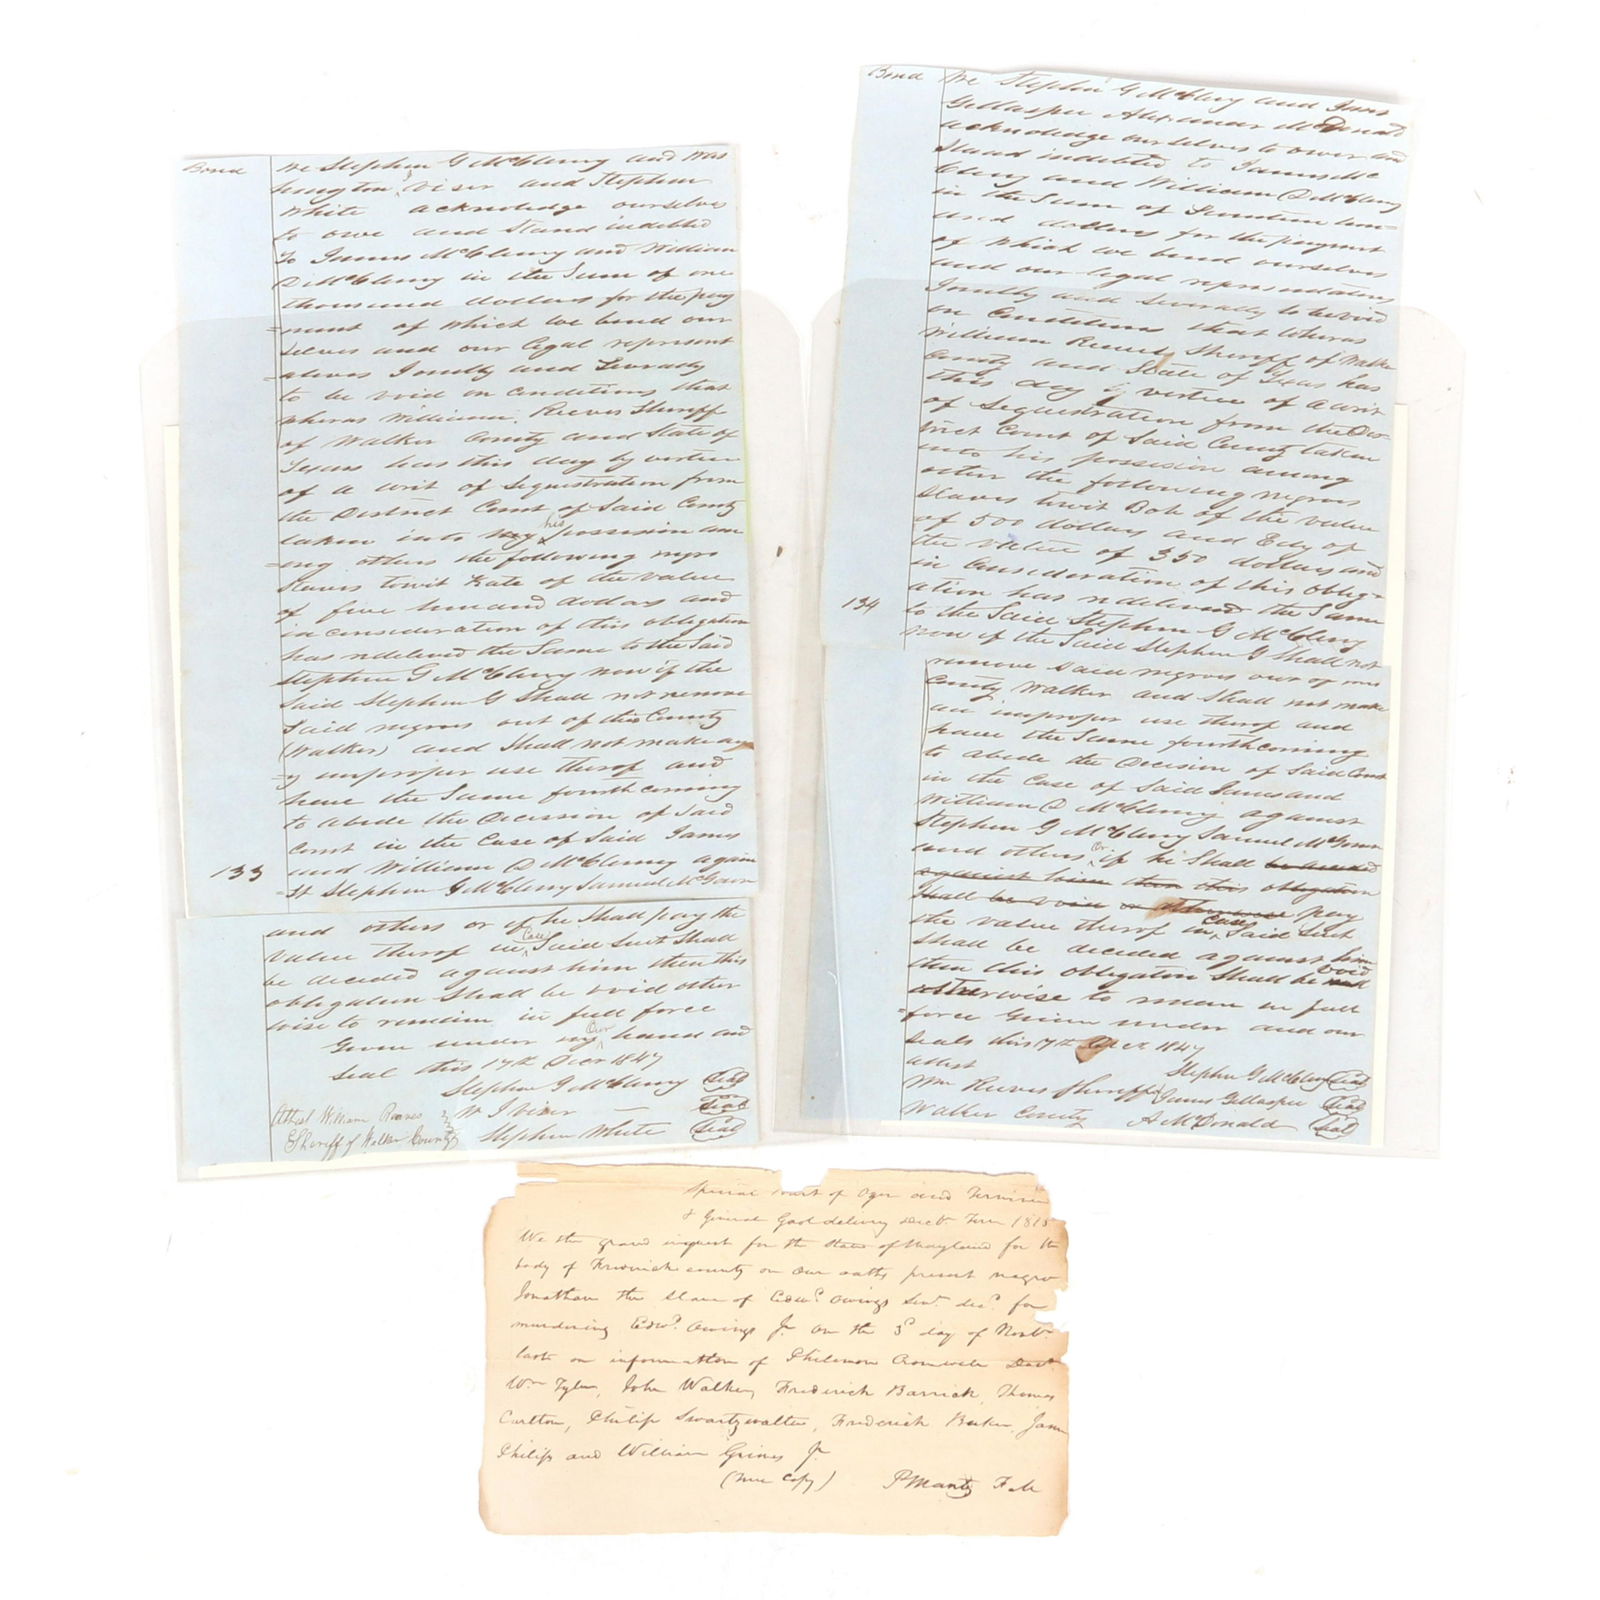 Bond We Stephen G McCleny and Was
hington Viser and Stephen
White acknoledge ourselve
to owe and Stand indebted
To James McCleny and William
D McCleny in the Sum of one
thousand dollars for the pay
=ment of which we bend our
selves and our legal represent
=atives Jointly and Severally
to be void on conditions that
wheras William Reeves Sheriff
of Walker County and State of
Texas has this day by vertue
of a writ of Sequistration from
the District Court of Said County
taken into my his possession am
=ong others the following negro
Slaves towit Kate of the value
of five hundred dollars and
in consideration of this obligation
has redelivered the Same to the Said
Stephen G McCleny now if the
Said Stephen G Shall not remove
Said negros out of this County
(Walker) and Shall not make an
=y improper use therof and
have the Same fourthcoming
to abide the Decission of Said
Court in the Case of Said James
133 and William D McCleny again
=st Stephen G McCleny Samuel McGown
and others or if he Shall pay the
value therof in Case Said Suit Shall
be decided against him then this
obligation Shall be void other
wise to remain in full force
Given under my Our hand and
seal this 17th Decr 1847
Stephen G McCleny Seal
W J Viser Seal
Attest William Reeves
Sheriff of Walker County
Stephen White Seal
Bond We Stephen G McCleny and James
Gillaspee Alexander McDonald
acknoledge ourselves to ower and
Stand indebted to James Mc
Cleny and William D McCleny
in the Sum of Seventeen hun=
dred dollars for the payment
of which we bend ourselves
and our legal representatives
Jointly and Severally to be void
on Conditions that wheras
William Reeves Sheriff of Walker
County and State of Texas has
this day by vertue of a writ
of Sequestration from the Dis=
trict Court of Said County taken
into his possesion among
other the following negros
Slaves towit Bob of the value
of 500 dollars and Edy of
the value of 350 dollars and
in Consideration of this oblig=
ation has redelivered the Same
134 to the Said Stephen G McCleny
now if the Said Stephen G Shall not
remove Said negros out of
County Walker and Shall not make
an improper use therof and
have the Same fourthcoming
to abide the Decision of Said Court
in the Case of Said James and
William D McCleny against
Stephen G McCleny Samuel McGown
and others Or if he Shall be decided
against him then this obligation
Shall be void or otherwise pay
the value therof in Case Said Suit
Shall be decided against him
then this obligation Shall be void
otherwise to remain in full
=force Given under and our
seals this 17th Decr 1847
attest
Stephen G McCleny Seal
Wm Reeves Sheriff James Gillaspee Seal
Walker County A McDonald Seal
Special Court of Oyer and Terminer
& General Gaol delivery Decr Term 1815
We the grand inquest for the State of Maryland for the
body of Frederick county on our oaths present negro
Jonathan the Slave of Edwd Owings Senr decd for
murdering Edwd Owings Jr on the 3d day of Novr
last on information of Philemon Cromwell
Wm Tyler, John Walker, Frederick Barrick, Thomas
Carlton, Philip Swartzwalter, Frederick Baker, James
Philips and William Grimes Jr
(True Copy) P Mantz